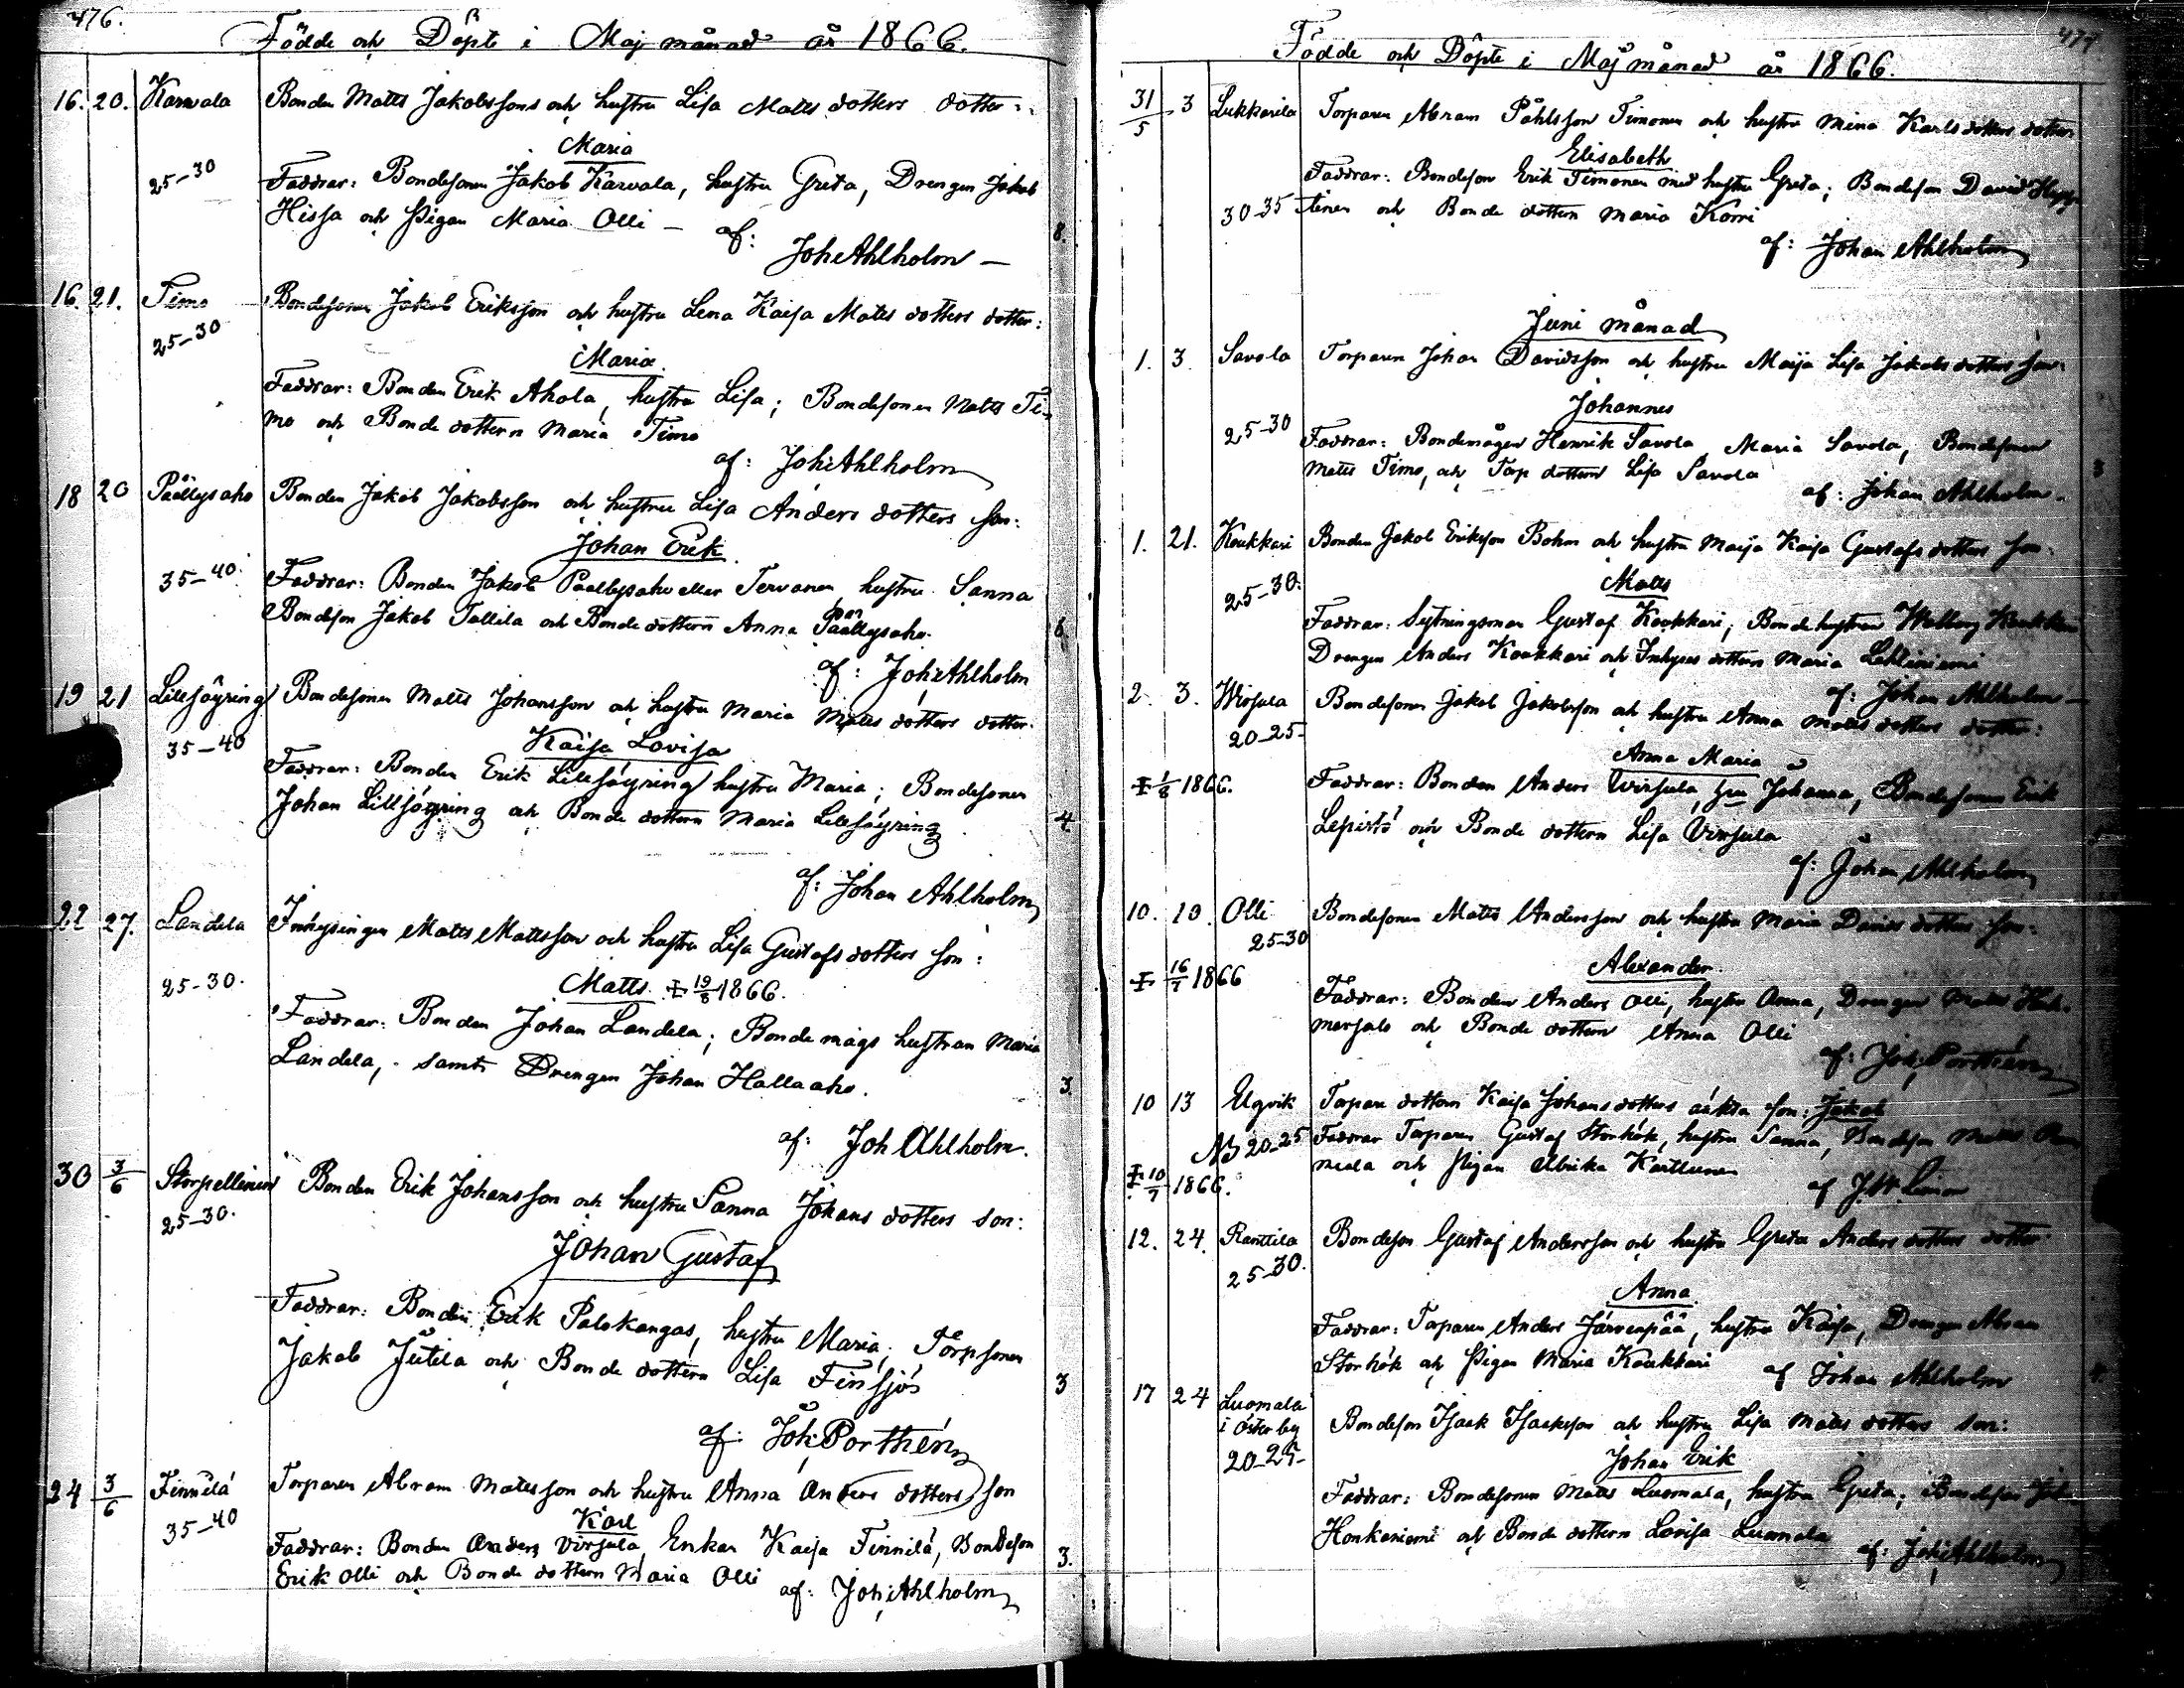 476.
Födde och Döpte i Maj månad år 1866.
16. 20. Karvala Bonden Matts Jakobssons och hustru Lisa Matts dotters dotter:
Maria
25-30 Faddrar: Bondesonen Jakob Karvala, hustru Greta, Drengen Jakob
Hissa och Pigan Maria Olli - af:
Joh: Ahlholm - 8.
16. 21. Timo Bondesonen Jakob Eriksson och hustru Lena Kaisa Matts dotters dotter:
25-30 Maria.
Faddrar: Bonden Erik Ahola, hustru Lisa; Bondesonen Matts Ti-
mo och Bonde dottern Maria Timo
af: Joh: Ahlholm
18 20 Päällysaho Bonden Jakob Jakobsson och hustru Lisa Anders dotters son:
Johan Erik
35-40. Faddrar: Bonden Jakob Paallysaho eller Tervanen hustru Sanna
Bondeson Jakob Tallila och Bonde dottern Anna Päällysaho. 6.
af: Joh: Ahlholm
19 21 Lillsöyring Bondesonen Matts Johansson och hustru Maria Matts dotters dotter.
35-40 Kaisa Lovisa
Faddrar: Bonden Erik Lillsöyring hustru Maria; Bondesonen
Johan Lillsöyring och Bonde dottern Maria Lillsöyring 4.
af: Johan Ahlholm
22 27. Landela Inhysingen Matts Mattsson och hustru Lisa Gustafs dotters son:
25-30. Matts. ‡ 19/8 1866.
Faddrar: Bonden Johan Landela; Bonde mågs hustrun Maria
Landela, - samt Drengen Johan Hallaaho. 3.
af: Joh Ahlholm.
30 3/6 Storpellinen Bonden Erik Johansson och hustru Sanna Johans dotters son:
25-30. Johan Gustaf
Faddrar: Bonden Erik Palokangas, hustru Maria; Torpsonen
Jakob Jutila och Bonde dottern Lisa Finsjö 3
af: Joh: Porthén
24 3/6 Finnilä Torparen Abram Matsson och hustru Anna Anders dotters son
35-40 Karl
Faddrar: Bonden Anders Virsula Enkan Kaisa Finnilä, Bondeson 3.
Erik Olli och Bonde dottern Maria Olli af: Joh: Ahlholm
477.
Födde och Döpte i Maj månad år 1866.
31/5 3 Lukkarila Torparen Abram Påhlsson Timonen och hustru Mina Karls dotters dotter
Elisabeth
Faddrar: Bondeson Erik Timonen med hustru Greta; Bondeson David
30-35 tinen och Bonde dottern Maria Korri
af: Johan Ahlholm
Juni månad
1. 3. Savola Torparen Johan Davidsson och hustru Maija Lisa Jakobs dotters son:
Johannes
25-30 Faddrar: Bondemågen Henrik Savola, Maria Savola, Bondesonen
Matts Timo, och Torp dottern Lisa Savola 3
af: Johan Ahlholm.
1. 21. Koukkari Bonden Jakob Eriksson Bohm och hustru Maija Kaisa Gustafs dotters son:
25-30. Matts
Faddrar: Sytningsman Gustaf Koukkari; Bonde hustrun Walborg Koukkari
Drengen Anders Koukkari och Inhyses dottern Maria Lehtiniemi
af: Johan Ahlholm -
2. 3. Wirsula Bondesonen Jakob Jakobsson och hustru Anna Matts dotters dotter:
20-25- Anna Maria
‡ 1/8 1866. Faddrar: Bonden Anders Wirsula, hru Johanna, Bondesonen Erik
Lepistö och Bonde dottern Lisa Virsula
af: Johan Ahlholm
10. 10. Olli Bondesonen Matts Andersson och hustru Maria Davids dotters son:
25-30 Alexander.
‡ 16/7 1866 Faddrar: Bonden Anders Olli, hustru Anna, Drengen Matts
mersalo och Bonde dottern Anna Olli
af: Joh: Porthén
10 13 Elgvik Torpare dottern Kaisa Johans dotters oäkta son: Jakob
NB 20-25 Faddrar Torparen Gustaf Storhök, hustru Sanna, Bondeson Matts
‡ 10/7 1866. mela och Pigan Ulrika Karttunen
af
12. 24. Ranttila Bondeson Gustaf Andersson och hustru Greta Anders dotters dotter
25-30. Anna.
Faddrar: Torparen Anders Järvenpää, hustru Kaisa, Drengen Abram
Storhök och Pigan Maria Koukkari af Johan Ahlholm
17 24 Luomala i Österby Bondeson Isaak Isaksson och hustru Lisa Matts dotters son:
20-25- Johan Erik
Faddrar: Bondesonen Matts Luomala, hustru Greta; Bondeson Joh
Honkaniemi och Bonde dottern Lovisa Luomala
af: Joh: Ahlholm